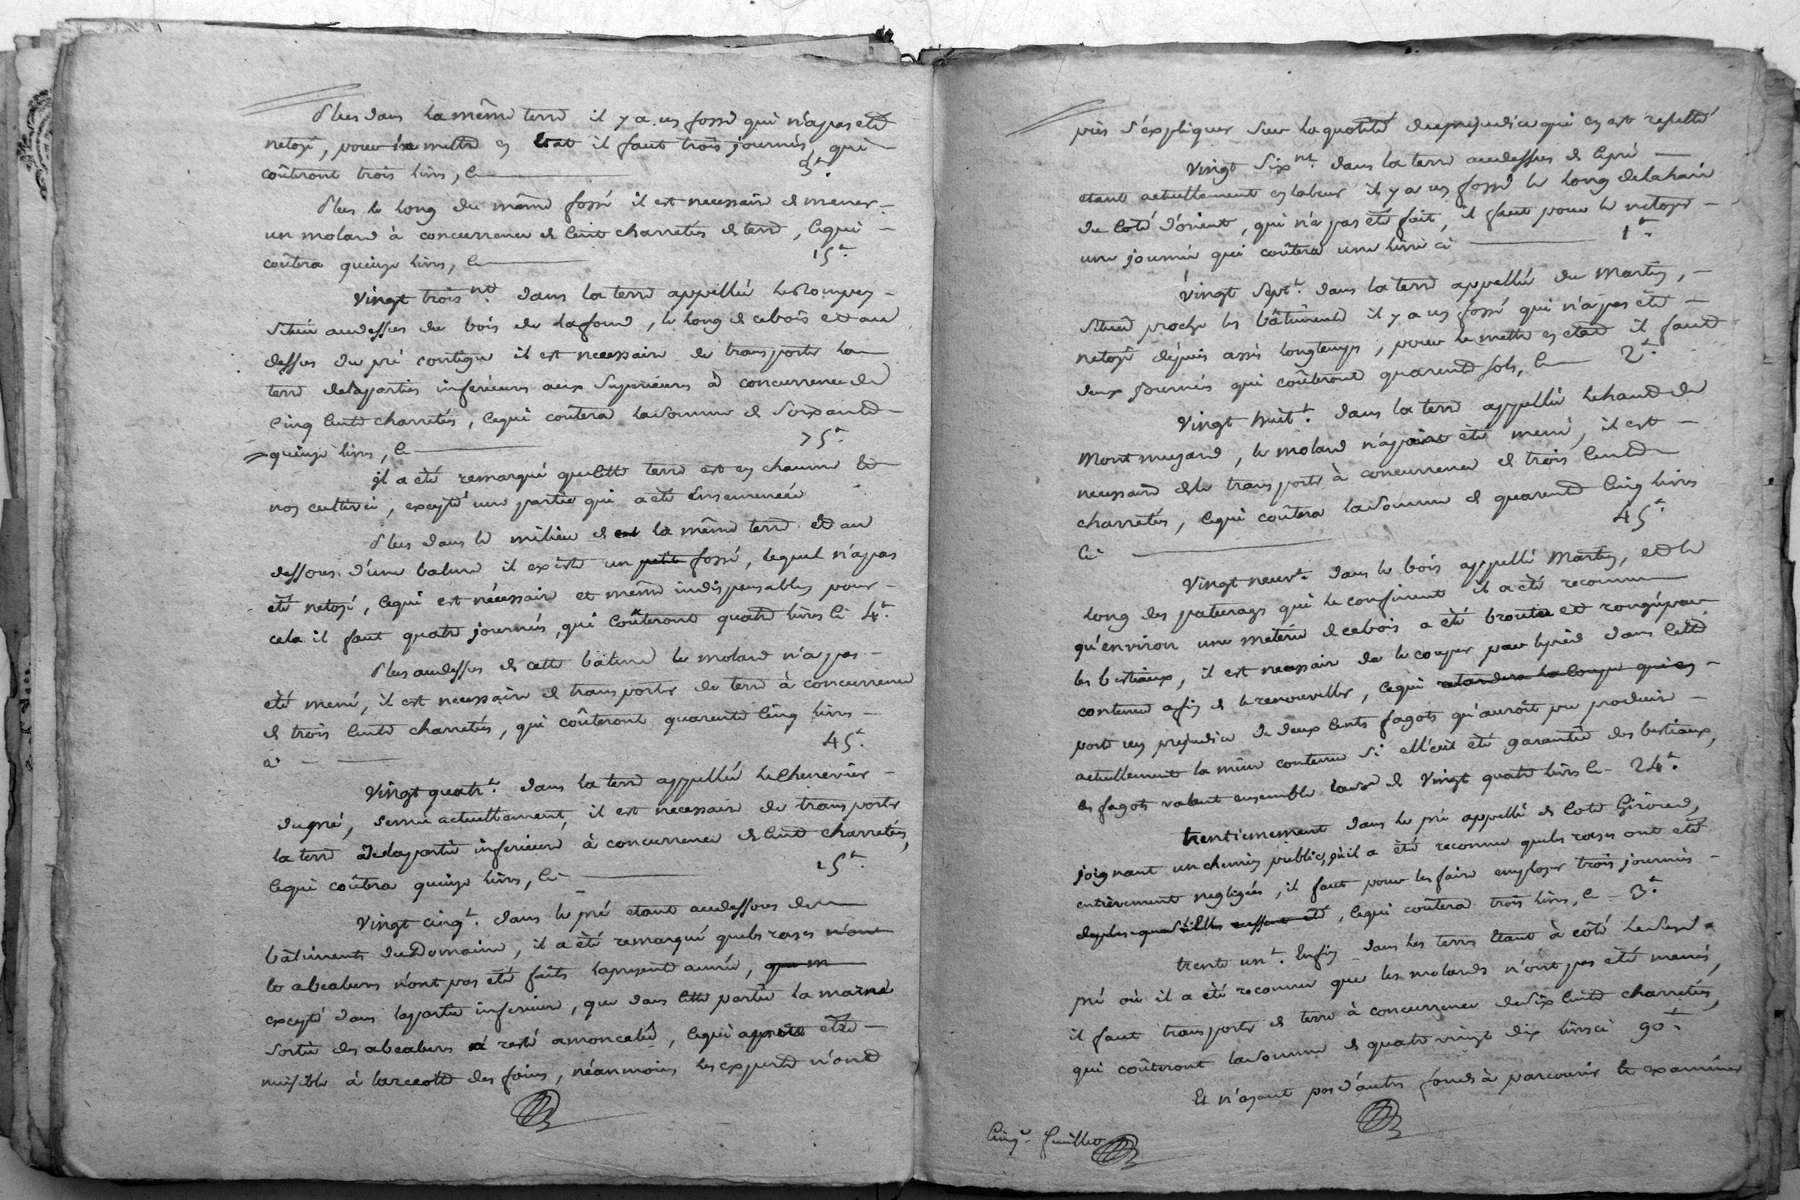 Plus dans la même terre il y a un fossé qui n'a pas été
netoyé, pour le mettre en état il faut trois journés, qui
coûteront trois livres, ci 3ᵗ.
Plus le long du même fossé il est necessaire de mener
un molard à concurrence de cent charretés de terre, ce qui
coûtera quinze livres, ci 15ᵗ.
Vingt trois.nt dans la terre appellée
située au dessus du bois de Lafond, le long de ce bois et au
dessus du pré contigu il est necessaire de transporter la
terre de la partie inferieure aux superieures à concurrence de
cinq cents charretés, ce qui coûtera la somme de soixante
quinze livres, ci 75ᵗ.
il a été remarqué que cette terre est en chaume et
non cultivée, excepté une partie qui a été ensemencée
Plus dans le milieu de la même terre et au
dessous d'une balme il existe un petit fossé, lequel n'a pas
été netoyé, ce qui est nécessaire et même indispensable, pour
cela il faut quatre journés, qui coûteront quatre livres ci 4ᵗ.
Plus au dessus de cette balme le molard n'a pas
été mené, il est necessaire de transporter de terre à concurrence
de trois cents charretés, qui coûteront quarente cinq livres
ci 45ᵗ.
Vingt quatrᵗ. dans la terre appellée le Chenevier
du pré, semée actuellement, il est necessaire de transporter
la terre de la partie inferieure à concurrence de cent charretés,
ce qui coûtera quinze livres, ci 15ᵗ.
Vingt cinqᵗ. dans le pré etant au dessous des
bâtiments du Domaine, il a été remarqué que les rases n'ont
et abeaburs n'ont pas été faits la présente année,
excepté dans la partie inferieure, que dans cette partie la marne
sortie des abeaburs a resté amoncelée, ce qui a été
nuisible à la recolte des foins, néanmoins les experts n'ont
pus s'expliquer sur la quotité du prejudice qui en est resulté
Vingt sixnt. dans la terre au dessus de ce pré
etant actuellement en labeur il y a un fossé le long de la haie
du coté d'orient, qui n'a pas été fait, il faut pour le netoyer
une journée qui coûtera une livre ci 1ᵗ.
Vingt septᵗ. dans la terre appellée du Martin,
située proche les bâtiments il y a un fossé qui n'a pas été
netoyé dépuis assés longtemps, pour le mettre en etat il faut
deux journés qui coûteront quarente sols, ci 2ᵗ.
Vingt huitᵗ. dans la terre appellée le haut de
Montmugard, le molard n'a pas été mené, il est
necessaire de le transporter à concurrence de trois cents
charretés, ce qui coûtera la somme de quarente cinq livres
ci 45ᵗ.
Vingt neuvᵗ. dans le bois appellé Martin, et le
long des paturages qui le confinent il a été reconnu
qu'environ une meterée de ce bois a été broutée et rongée par
les bestiaux, il est necessaire de le couper par le pied dans cette
contenue afin de le renouveller, ce qui retardera la coupe qui en
porte un prejudice de deux cents fagots qu'auroit pu produire
actuellement la même contenue si elle eut été garantie des bestiaux,
les fagots valent ensemble la somme de vingt quatre livres ci 24ᵗ.
trentiemement dans le pré appellé de Coté Giroud,
joignant un chemin public, où il a été reconnu que les rases ont été
entièrement negligées, il faut pour les faire employer trois journés
, ce qui coûtera trois livres, ci 3ᵗ.
trente unᵗ. Enfin dans les terres etant à côté le
pré où il a été reconnu que les molards n'ont pas été menés,
il faut transporter de terre à concurrence de six cents charretés,
qui coûteront la somme de quatre vingt dix livres ci 90ᵗ.
Et n'ayant pas d'autres fonds à parcourir et examiner